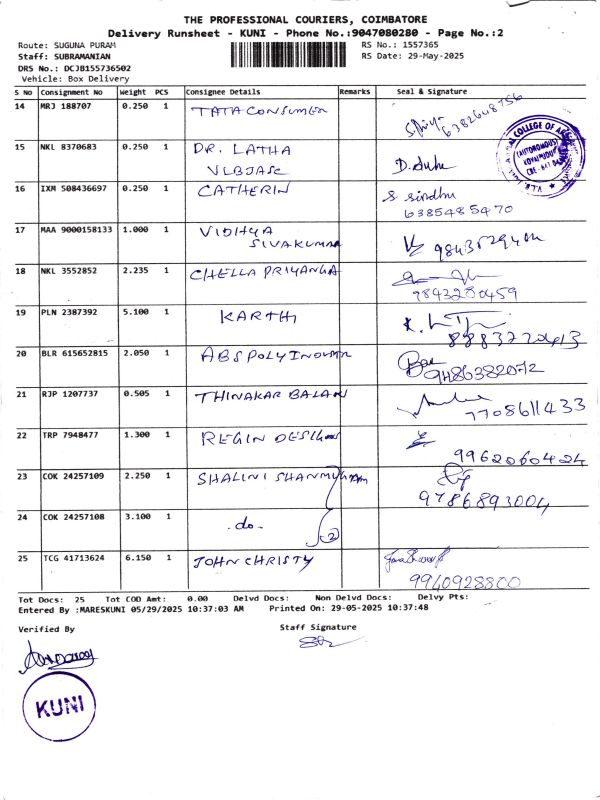 THE PROFESSIONAL COURIERS, COIMBATORE
Delivery Runsheet - KUNI - Phone No.:9047080280 - Page No.:2
Route: SUGUNA PURAM RS No.: 1557365
Staff: SUBRAMANIAN RS Date: 29-May-2025
DRS No.: DCJB155736502
Vehicle: Box Delivery
S No Consignment No Weight PCS Consignee Details Remarks Seal & Signature
14 MRJ 188707 0.250 1 TATA CONSUMER 6382648756
15 NKL 8370683 0.250 1 DR. LATHA
VLBJASC
16 IXM 508436697 0.250 1 CATHERIN S Sindhu
6385485470
17 MAA 9000158133 1.000 1 VIDHYA
SIVAKUMAR
18 NKL 3552852 2.235 1 CHELLA PRIYANGA
9843280459
19 PLN 2387392 5.100 1 KARTHI
8883722413
20 BLR 615652815 2.050 1 ABS POLY
9486382072
21 RJP 1207737 0.505 1 THINAKAR BALAN
7708611433
22 TRP 7948477 1.300 1 REGIN DESIGNS
9962060424
23 COK 24257109 2.250 1 SHALINI SHANMUGAM
9786893004
24 COK 24257108 3.100 1 -do-
25 TCG 41713624 6.150 1 JOHN CHRISTY
9940928800
Tot Docs: 25 Tot COD Amt: 0.00 Delvd Docs: Non Delvd Docs: Delvy Pts:
Entered By :MARESKUNI 05/29/2025 10:37:03 AM Printed On: 29-05-2025 10:37:48
Verified By Staff Signature
KUNI